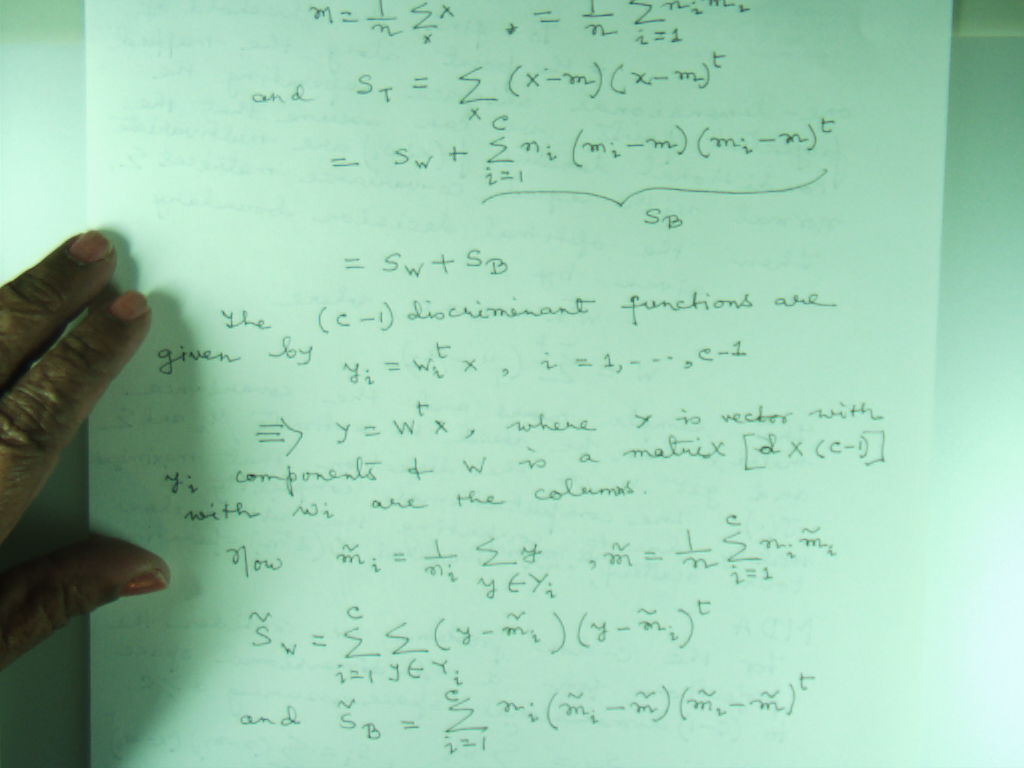 m = 1/n Σ_x x = 1/n Σ_{i=1} n_i m_i
and S_T = Σ_x (x-m)(x-m)^t
= S_W + Σ_{i=1}^{C} n_i (m_i-m)(m_i-m)^t
S_B
= S_W + S_B
The (c-1) discriminant functions are
given by y_i = w_i^t x, i = 1, ---, c-1
⇒ y = W^t x, where Y is vector with
y_i components & W is a matrix [d x (c-1)]
with w_i are the columns.
Now m̃_i = 1/n_i Σ_{y∈Y_i} y, m̃ = 1/n Σ_{i=1}^{c} n_i m̃_i
S̃_W = Σ_{i=1}^{C} Σ_{y∈Y_i} (y-m̃_i)(y-m̃_i)^t
and S̃_B = Σ_{i=1}^{c} n_i (m̃_i-m̃)(m̃_i-m̃)^t